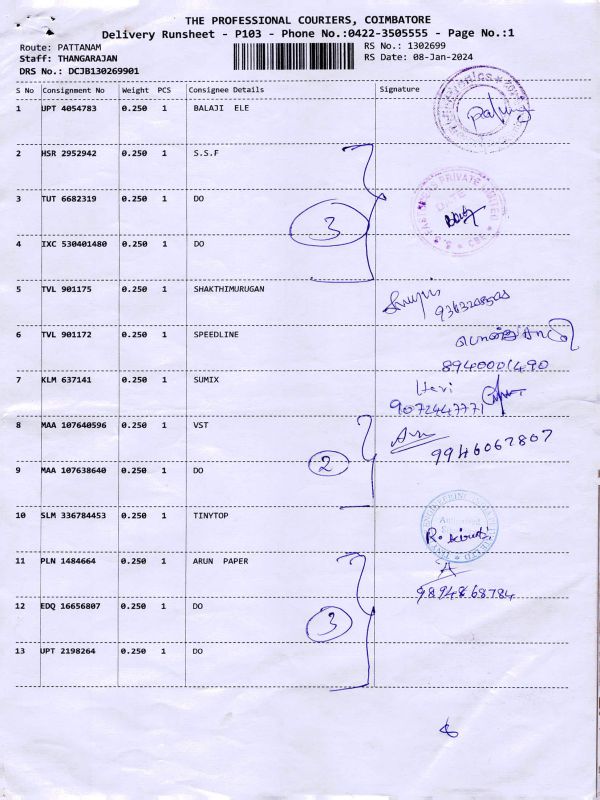 THE PROFESSIONAL COURIERS, COIMBATORE
Delivery Runsheet - P103 - Phone No.:0422-3505555 - Page No.:1
Route: PATTANAM RS No.: 1302699
Staff: THANGARAJAN RS Date: 08-Jan-2024
DRS No.: DCJB130269901
S No Consignment No Weight PCS Consignee Details Signature
1 UPT 4054783 0.250 1 BALAJI ELE
2 HSR 2952942 0.250 1 S.S.F
3 TUT 6682319 0.250 1 DO
3
4 IXC 530401480 0.250 1 DO
5 TVL 901175 0.250 1 SHAKTHIMURUGAN
6 TVL 901172 0.250 1 SPEEDLINE
8940001490
7 KLM 637141 0.250 1 SUMIX Hari
9072447771
8 MAA 107640596 0.250 1 VST
9946067807
9 MAA 107638640 0.250 1 DO
2
10 SLM 336784453 0.250 1 TINYTOP
11 PLN 1484664 0.250 1 ARUN PAPER
9894868784
12 EDQ 16656807 0.250 1 DO
3
13 UPT 2198264 0.250 1 DO